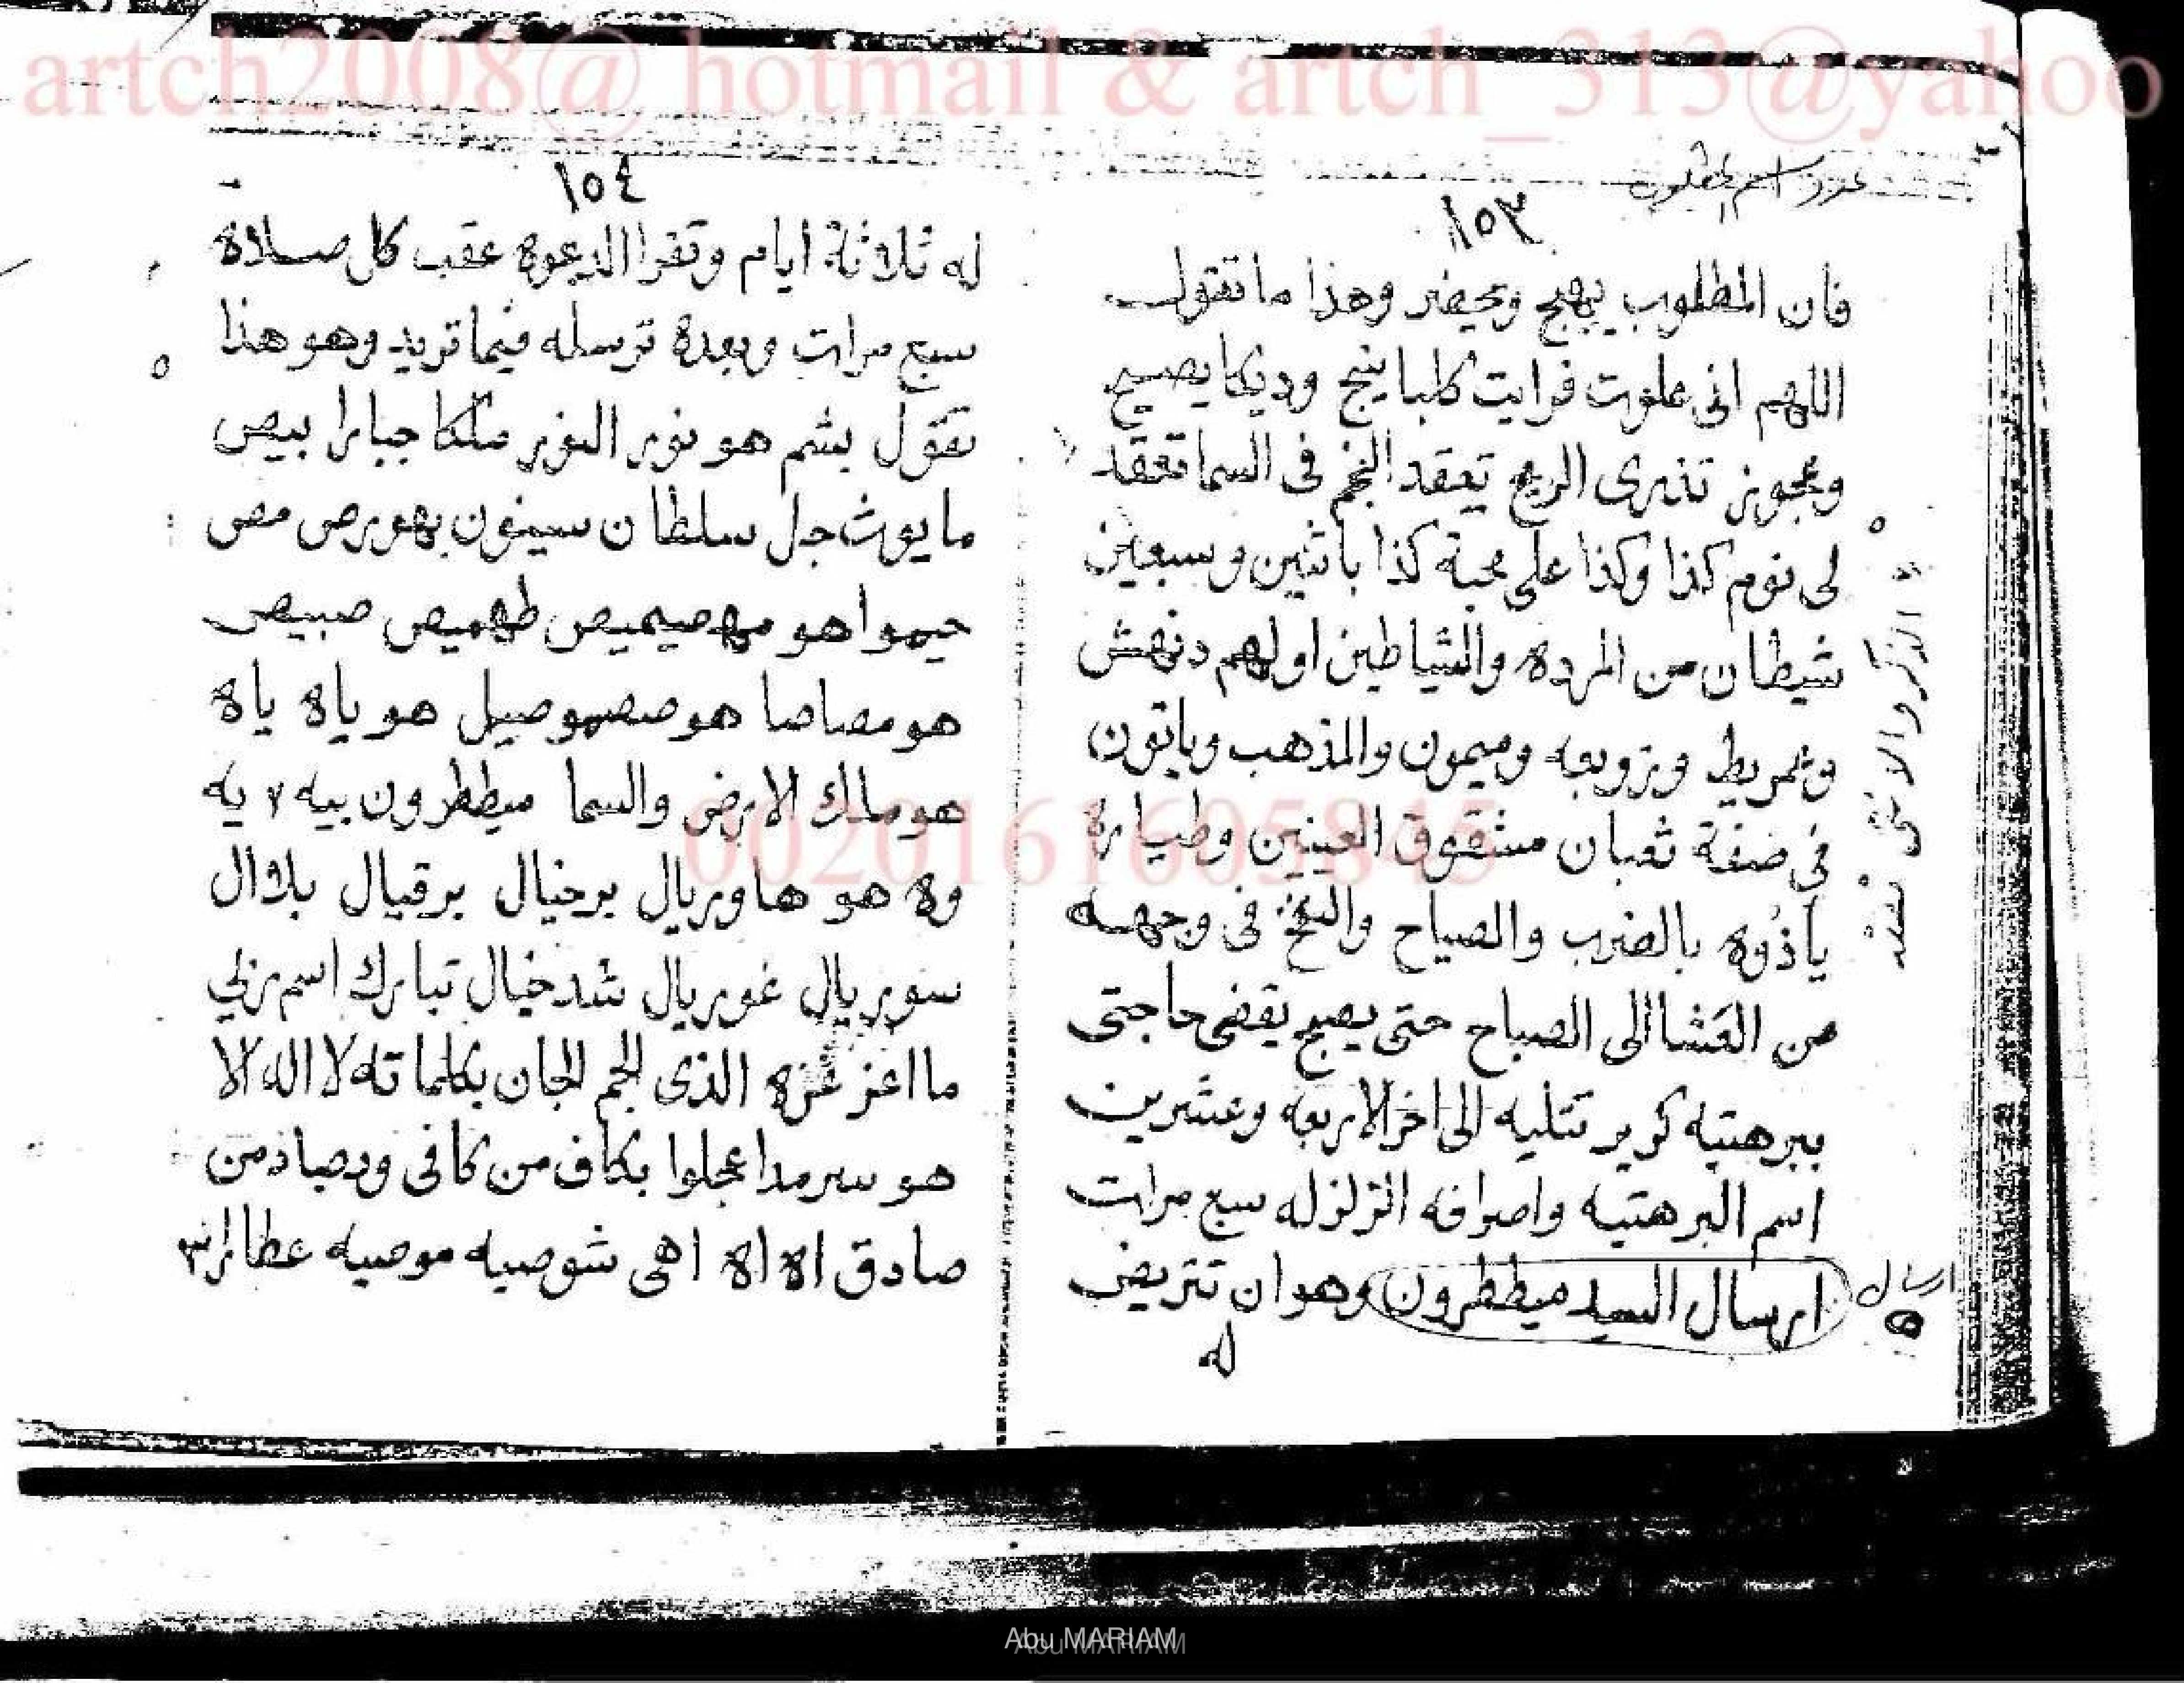 artch2008@ hotmail & artch_313@yahoo
١٥٣
فان المطلوب يهيج ويحضر وهذا ما تقول
اللهم انى علوت فرايت كلبا ينبح وديكا يصيح
وعجوز تذرى الريح تعقد النجم فى السما تعقد
لى نوم كذا وكذا على محبة كذا باثنين وسبعين
شيطان من المرده والشياطين اولهم دنهش
وشمريط وزوبعه وميمون والمذهب وياتون
فى صفة ثعبان مشقوق العينين وطياره
ياذوه بالضرب والصياح والنخ فى وجهه
من العشا الى الصباح حتى يصبح يقضى حاجتى
ببرهتيه كرير تتليه الى اخر الاربعه وعشرين
اسم البرهتيه واصرافه الزلزله سبع مرات
ارسال السيد ميططرون وهو ان تتريض
له
ارسال
١٥٤
له ثلاثة ايام وتقرا الدعوه عقب كل صلاه
سبع مرات وبعده ترسله فيما تريد وهو هذا
تقول بشم هو نور النور ملكا جبارا بيص
مايوث جل سلطان سيفون بهورص مص
حيموا هو مهصيميص طهميص صبيص
هو مصاصا هو صصهوصيل هو ياه ياه
هو مالك الارض والسما ميططرون بيه ٧ يه
وه هو هاوريال برخيال برقيال بلاال
سوريال غوريال شدخيال تبارك اسم ربي
ما اعز عزه الذى الجم الجان بكلماته لا اله الا
هو سرمدا عجلوا بكاف من كافى وبصاد من
صادق اه اه اهى شوصيه موصيه عطا
0020161605845
Abu MARIAM